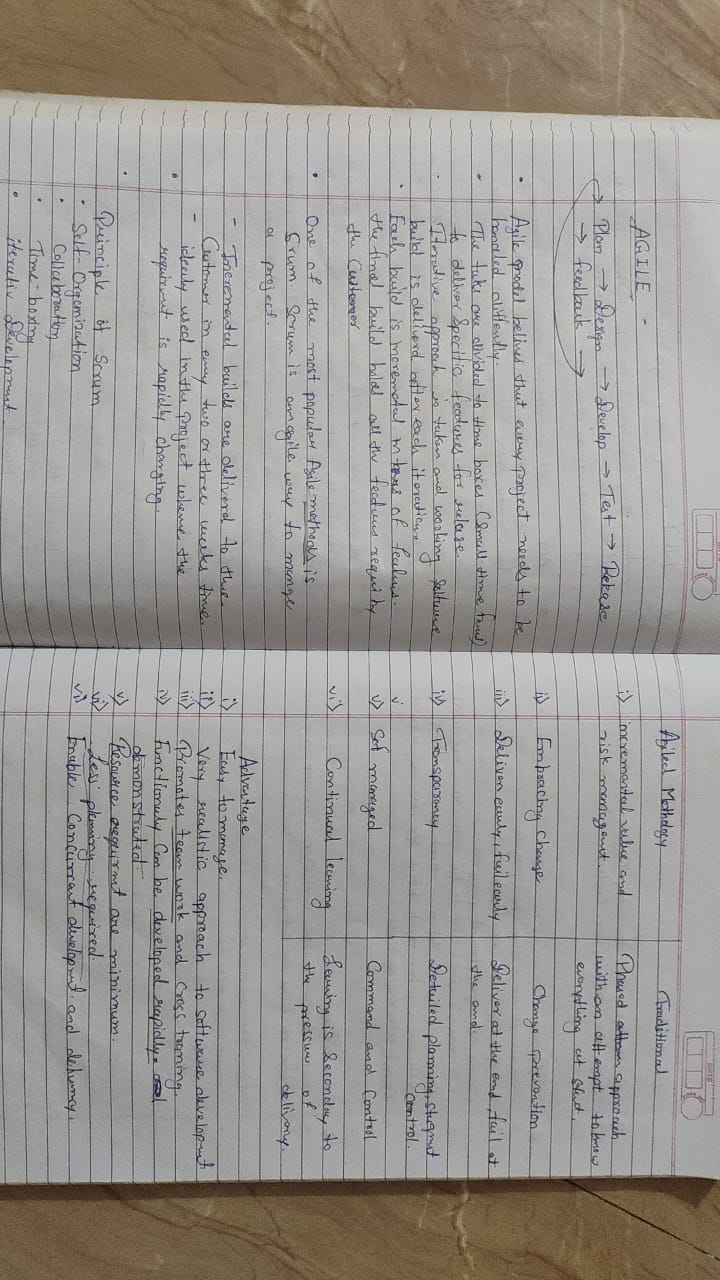 AGILE -
Plan → Design → Develop → Test → Release
→ feedback →
• Agile model belives that every project needs to be
handled diffently.
• The taks are divided to time boxes (Small time
to deliver specific features for relase.
• Iterative approach is taken and working Software
build is deliverd after each iteration.
• Each build is incremetal in of
the final build holds all the features by
the Customer
• One of the most popular Agile methods is
Srum. Scrum is an agile way to mange
a project.
- Incremental builds are deliverd to the
Customer in every two or three weeks time.
- idealy used in the project where the
requirmt is rapidly changing.
Principle of Scrum
• Self-Organization
• Collaboration
• Time-boxing
• iterativ Development
DATE
Agiled Methdogy
Traditional
i) incremental value and
risk managemt.
Phased approach
with an attempt to know
everything at start.
ii) Embracing Change
Change prevention
iii) Deliver early, fail early
Deliver at the end, fail at
the end.
iv) Transparancy
Detailed planning,
Control.
v
v) Self managed
Command and Control
vi) Continual learning
Learning is Seconday to
the pressure of
delivary.
Advantage
i) Easy to manage.
ii) Very realistic approach to software developmt
iii) Promotes team work and Cross training.
iv) Functionaly Can be developed rapidly
demonstrated
v) Resource requirmt are minimum.
vi) Less planning required
vii) Enable Concurrant developmt and delivery.